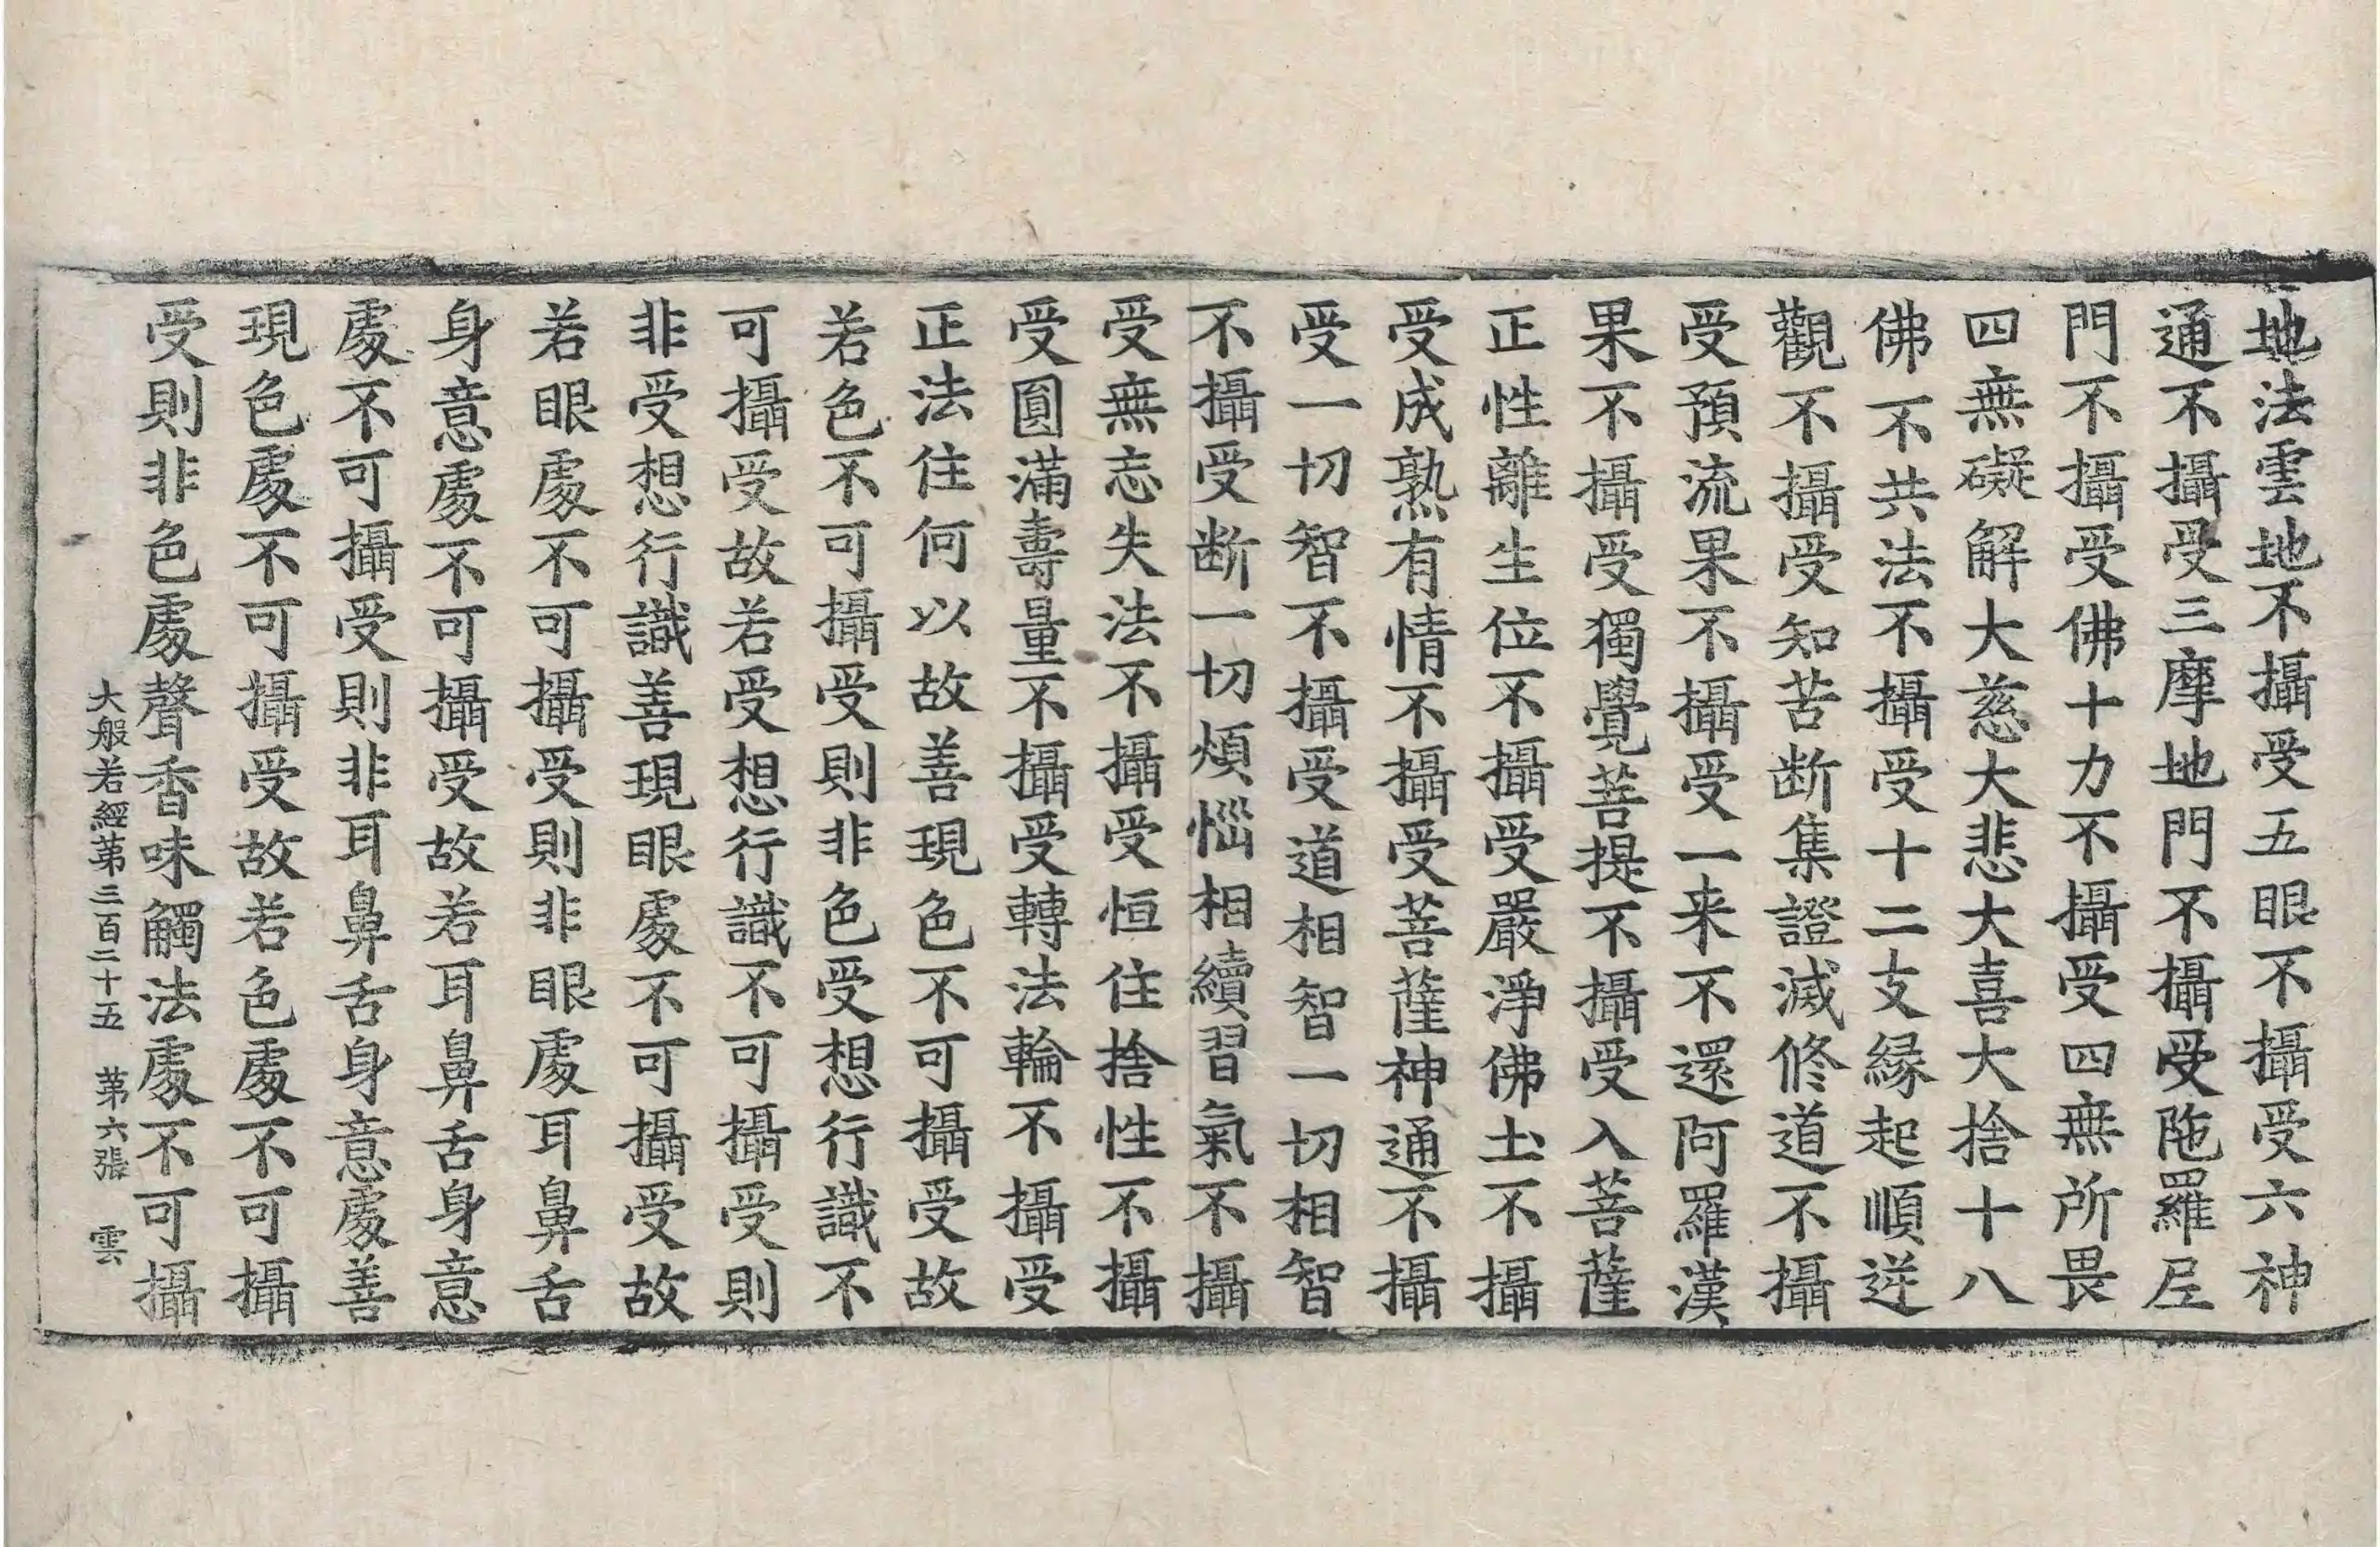 地法雲地不攝受五眼不攝受六神
通不攝受三摩地門不攝受陁羅𡰱
門不攝受佛十力不攝受四無所畏
四無礙解大慈大悲大喜大捨十八
佛不共法不攝受十二支縁起順逆
觀不攝受知苦断集證滅修道不攝
受預流果不攝受一来不還阿羅漢
果不攝受獨覺菩提不攝受入菩薩
正性離生位不攝受嚴淨佛土不攝
受成熟有情不攝受菩薩神通不攝
受一切智不攝受道相智一切相智
不攝受断一切煩惱相續習氣不攝
受無忘失法不攝受恒住捨性不攝
受圓滿壽量不攝受轉法輪不攝受
正法住何以故善現色不可攝受故
若色不可攝受則非色受想行識不
可攝受故若受想行識不可攝受則
非受想行識善現眼處不可攝受故
若眼處不可攝受則非眼處耳鼻舌
身意處不可攝受故若耳鼻舌身意
處不可攝受則非耳鼻舌身意處善
現色處不可攝受故若色處不可攝
受則非色處聲香味觸法處不可攝
大般若經第三百二十五 第六張 雲